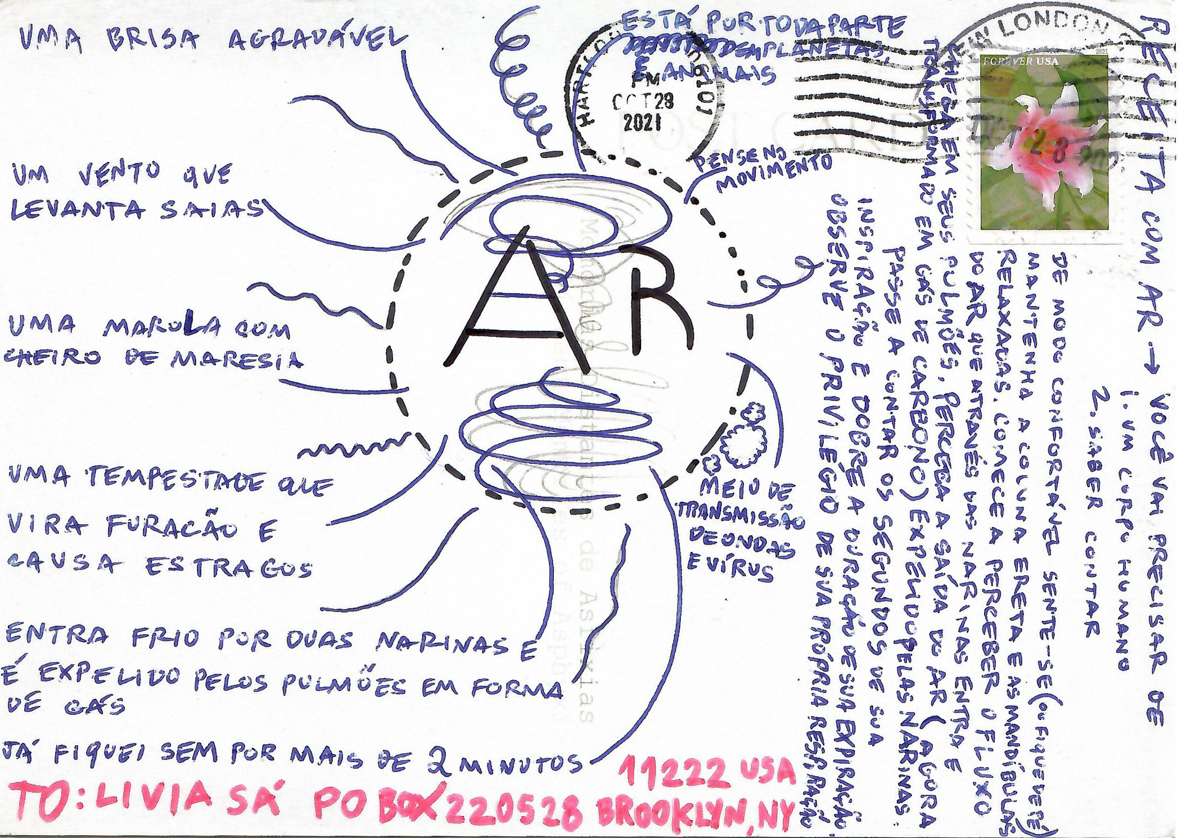 UMA BRISA AGRADÁVEL
UM VENTO QUE
LEVANTA SAIAS
UMA MAROLA COM
CHEIRO DE MARESIA
UMA TEMPESTADE QUE
VIRA FURACÃO E
CAUSA ESTRAGOS
ENTRA FRIO POR DUAS NARINAS E
É EXPELIDO PELOS PULMÕES EM FORMA
DE GÁS
JÁ FIQUEI SEM POR MAIS DE 2 MINUTOS
AR
ESTÁ POR TODA PARTE
EM PLANETAS,
E ANIMAIS
PENSE NO
MOVIMENTO
MEIO DE
TRANSMISSÃO
DE ONDAS
E VÍRUS
PM
OCT 28
2021
NEW LONDON
FOREVER USA
RECEITA COM AR → VOCÊ VAI PRECISAR DE
1. UM CORPO HUMANO
2. SABER CONTAR
DE MODO CONFORTÁVEL SENTE-SE (OU FIQUE DE PÉ)
MANTENHA A COLUNA ERETA E AS MANDÍBULAS
RELAXADAS. COMECE A PERCEBER O FLUXO
DO AR QUE ATRAVÉS DAS NARINAS ENTRA E
CHEGA EM SEUS PULMÕES. PERCEBA A SAÍDA DO AR (AGORA
TRANSFORMADO EM GÁS DE CARBONO) EXPELIDO PELAS NARINAS.
PASSE A CONTAR OS SEGUNDOS DE SUA
INSPIRAÇÃO E DOBRE A DURAÇÃO DE SUA EXPIRAÇÃO
OBSERVE O PRIVILÉGIO DE SUA PRÓPRIA RESPIRAÇÃO
de Asfixias
11222 USA
TO: LIVIA SÁ PO BOX 220528 BROOKLYN, NY